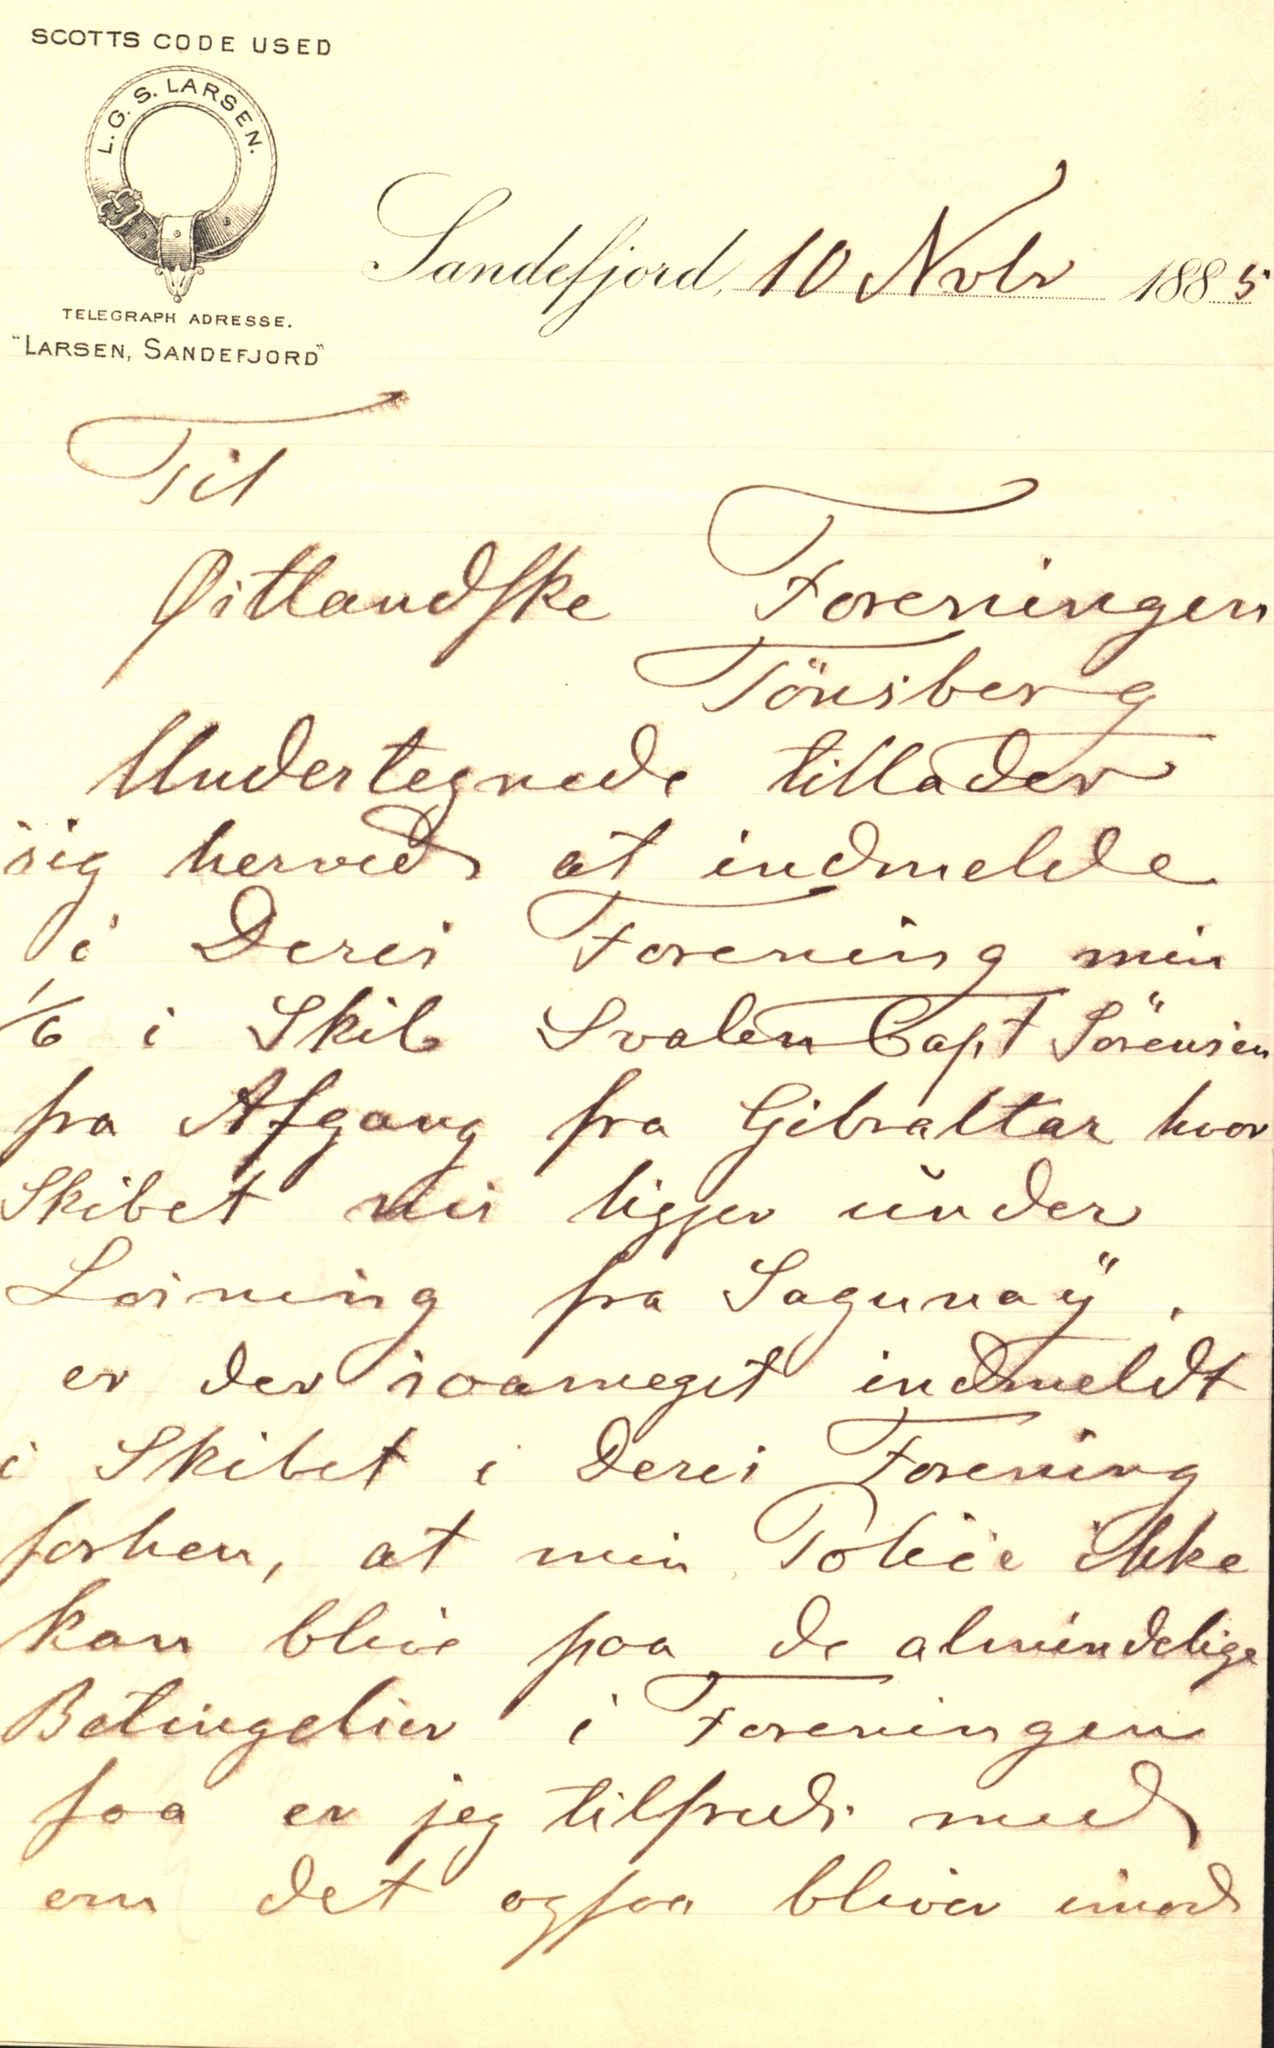 SCOTTS CODE USED
L. G. S. LARSEN.
TELEGRAPH ADRESSE.
"LARSEN, SANDEFJORD"
Sandefjord, 10 Novbr 1885
Til
Østlandske Foreningen
Tönsberg
Undertegnede tillader
sig herved at indmelde
i Deres Forening min
1/6 i Skib Svalen Capt Sörensen
fra Afgang fra Gibraltar hvor
Skibet nu ligger under
Losning fra Sagunaÿ.
er der saameget indmeldt
i Skibet i Deres Forening
forhen, at min Police ikke
kan blive paa de almindelige
Betingelser i Foreningen
saa er jeg tilfreds med
om det ogsaa bliver imod